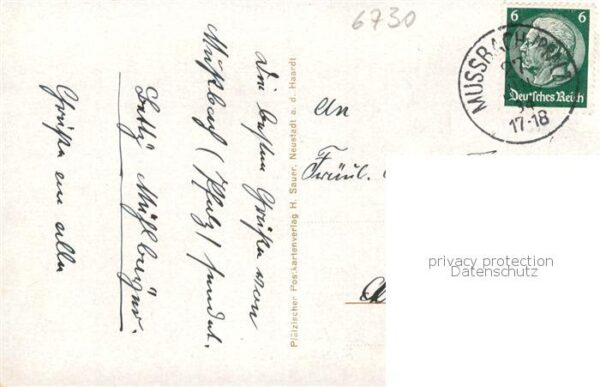 6730
Die besten Grüße von
Mußbach (Pfalz) sendet.
Betty Mühlberger.
Grüße an alle
Pfälzischer Postkartenverlag H. Sauer, Neustadt a. d. Haardt
An
Fräul.
MUSSBACH (PFALZ)
17-18
6 6
Deutsches Reich
privacy protection
Datenschutz